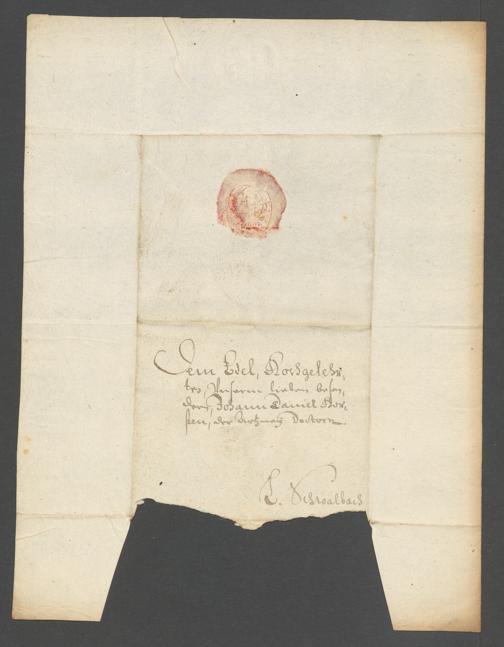 Dem Edel, Hochgelehr,
ten, Unserm lieben beson,
dern, Johann Daniel Hor,
sten, der Artzney Doctorn
L. Schwalbach